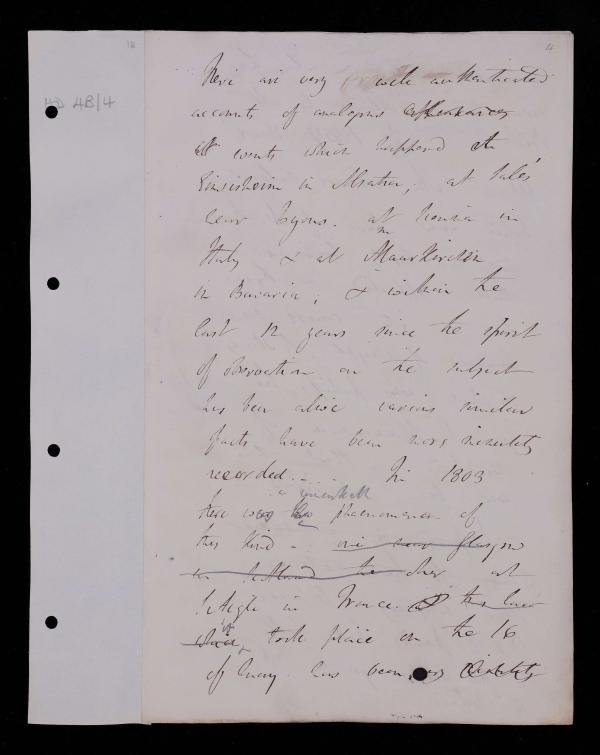 4
12
HD 4B/4
There are very well authenticated
accounts of analogous
events which happened at
Ensisheim in Alsatia, at Salés
near Lyons. at in
Italy & at Maurkirchen
in Bavaria, & within the
last 12 years since the spirit
of observation on the subject
has been alive various similar
facts have been more minutely
recorded.... In 1803
a remarkable
there was phaenomenon of
this kind - one near Glasgow
in Scotland the other at
L'Aigle in France. & the
which it took place on the 16
of May. has been very minutely